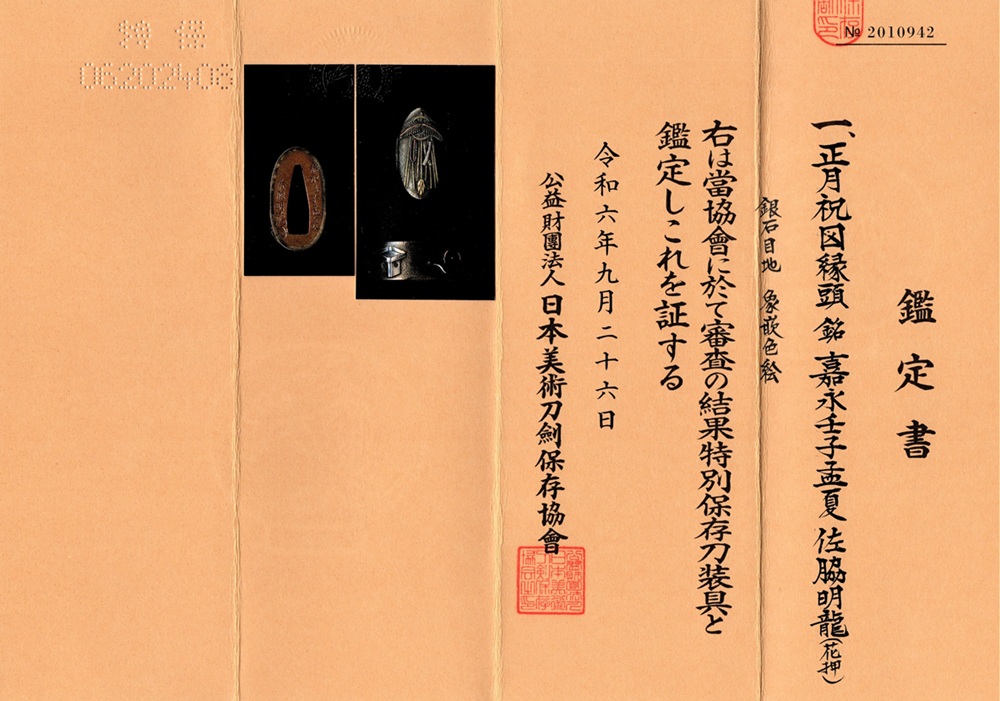 № 2010942
鑑定書
一、正月祝図縁頭 銘 嘉永壬子孟夏 佐脇明龍(花押)
銀石目地 象嵌色絵
右は當協會に於て審査の結果特別保存刀装具と
鑑定しこれを証する
令和六年九月二十六日
公益財團法人 日本美術刀劍保存協會
06202408